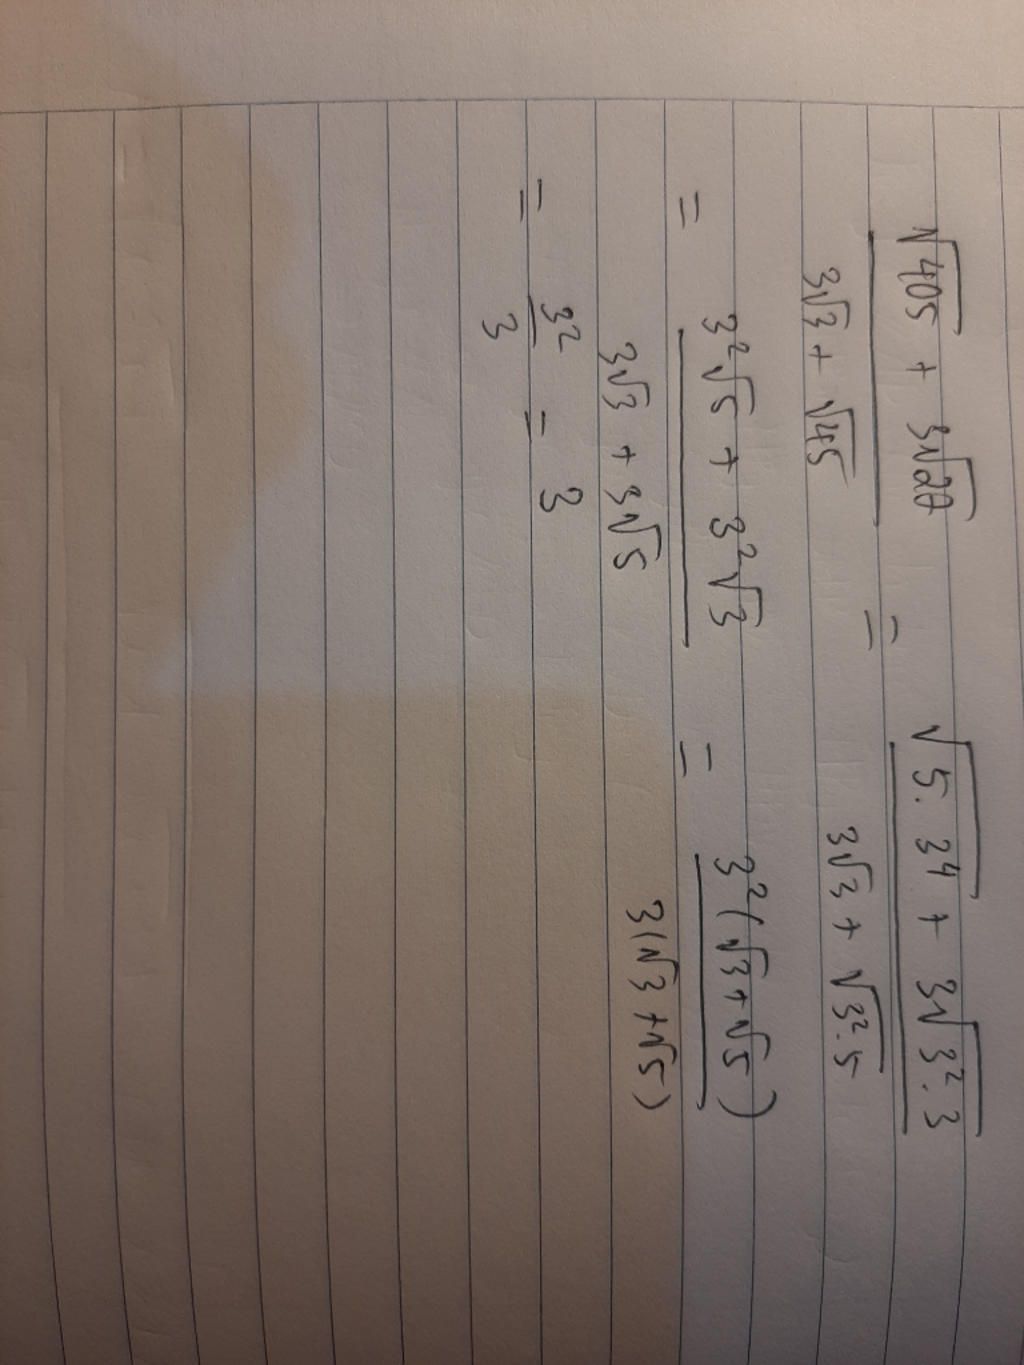 (√405 + 3√27)/(3√3 + √45) = (√(5·3⁴) + 3√(3²·3))/(3√3 + √(3²·5))
= (3²√5 + 3²√3)/(3√3 + 3√5) = (3²(√3+√5))/(3(√3+√5))
= 3²/3 = 3